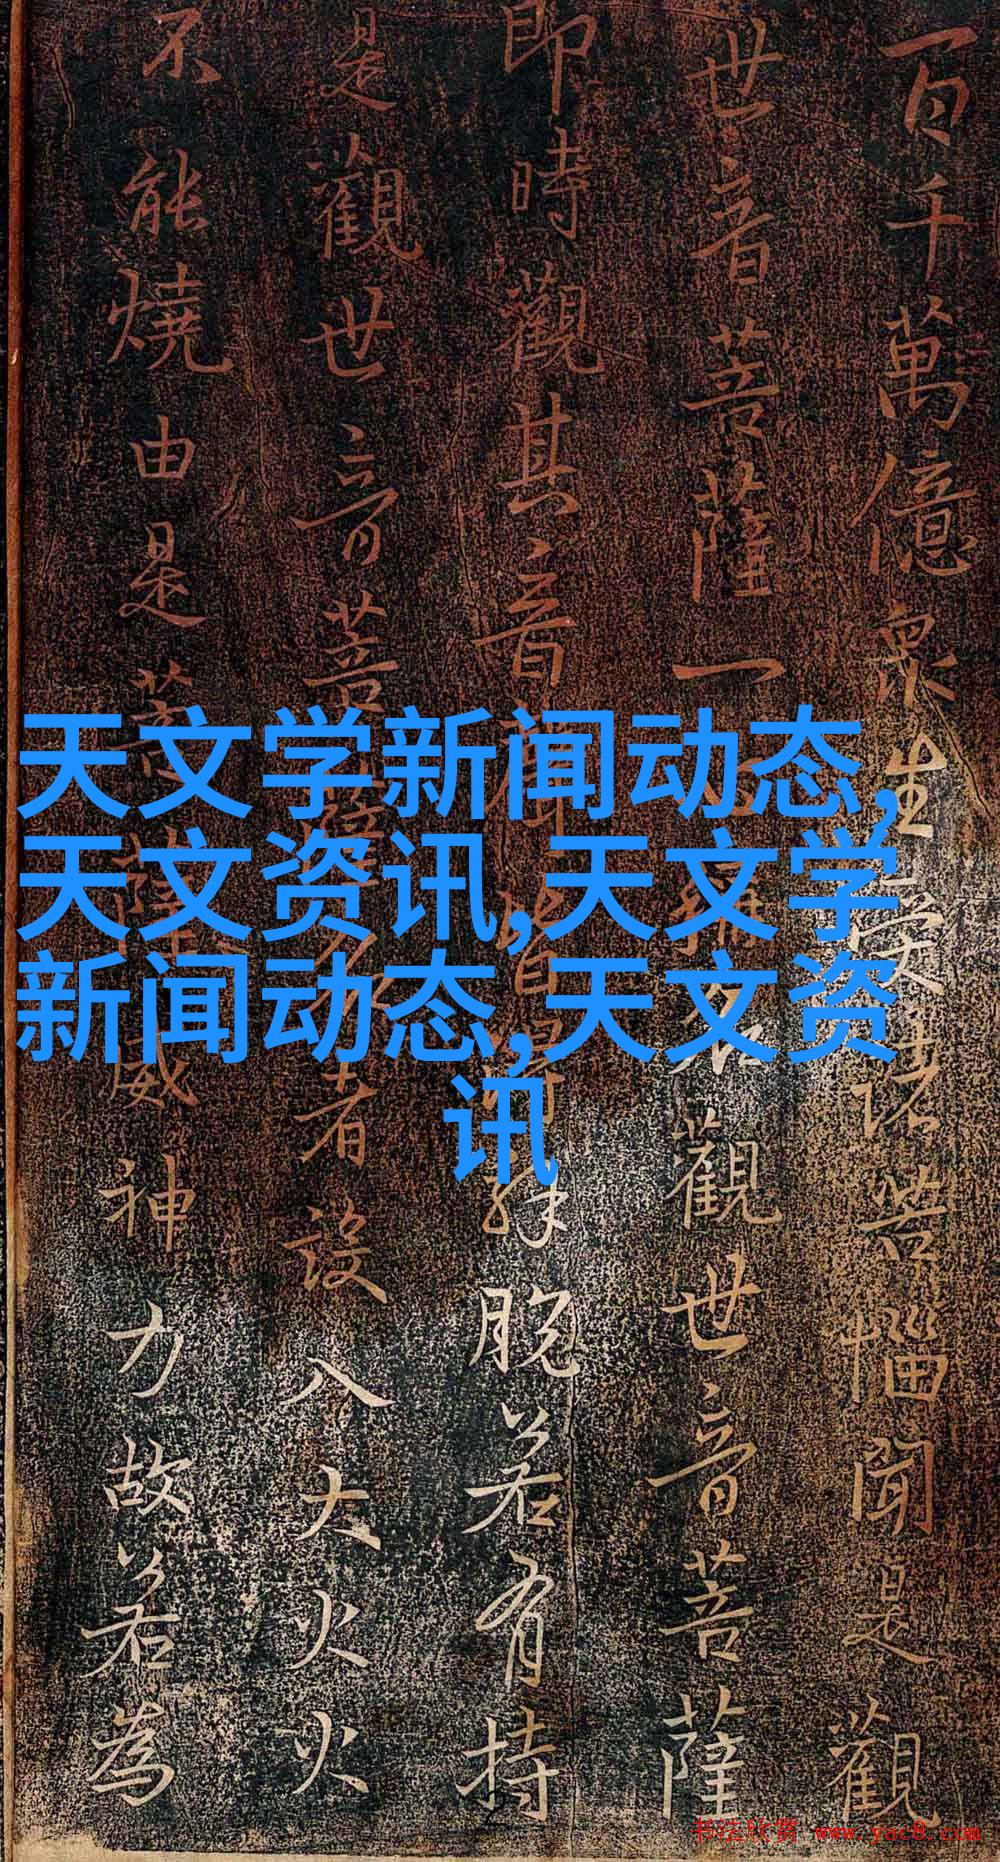 百千萬億眾生受諸苦惱聞是觀
世音菩薩一心稱名觀世音菩薩
即時觀其音聲皆得解脫若有持
是觀世音菩薩名者設入大火火
不能燒由是菩薩威神力故若為
天文学新闻动态,
天文资讯,天文学
新闻动态,天文资
讯
书法欣赏 www.yac8.com